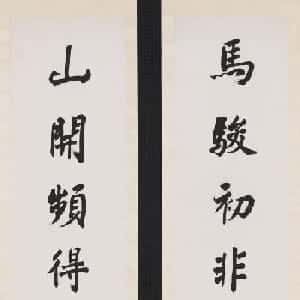 馬駿初非
山開頻得